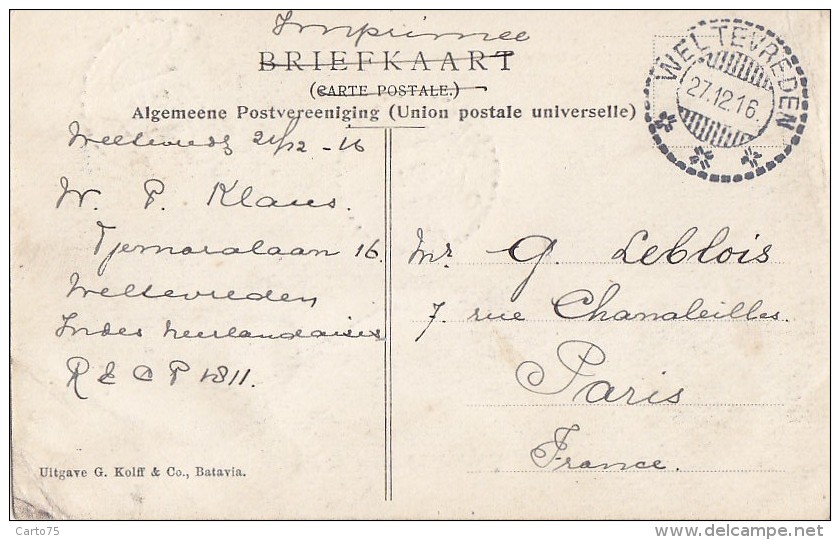 Imprimee
BRIEFKAART
(CARTE POSTALE.)
Algemeene Postvereeniging (Union postale universelle)
WELTEVREDEN
27.12.16.
21/12 - 16
W. P. Klaus.
Tjemaralaan 16.
Weltevreden
Indes Neerlandaises
R E C P 1811.
Mr G. Leblois
7 rue Chanaleilles.
Paris
France.
Uitgave G. Kolff & Co., Batavia.
Carto75
www.delcampe.net